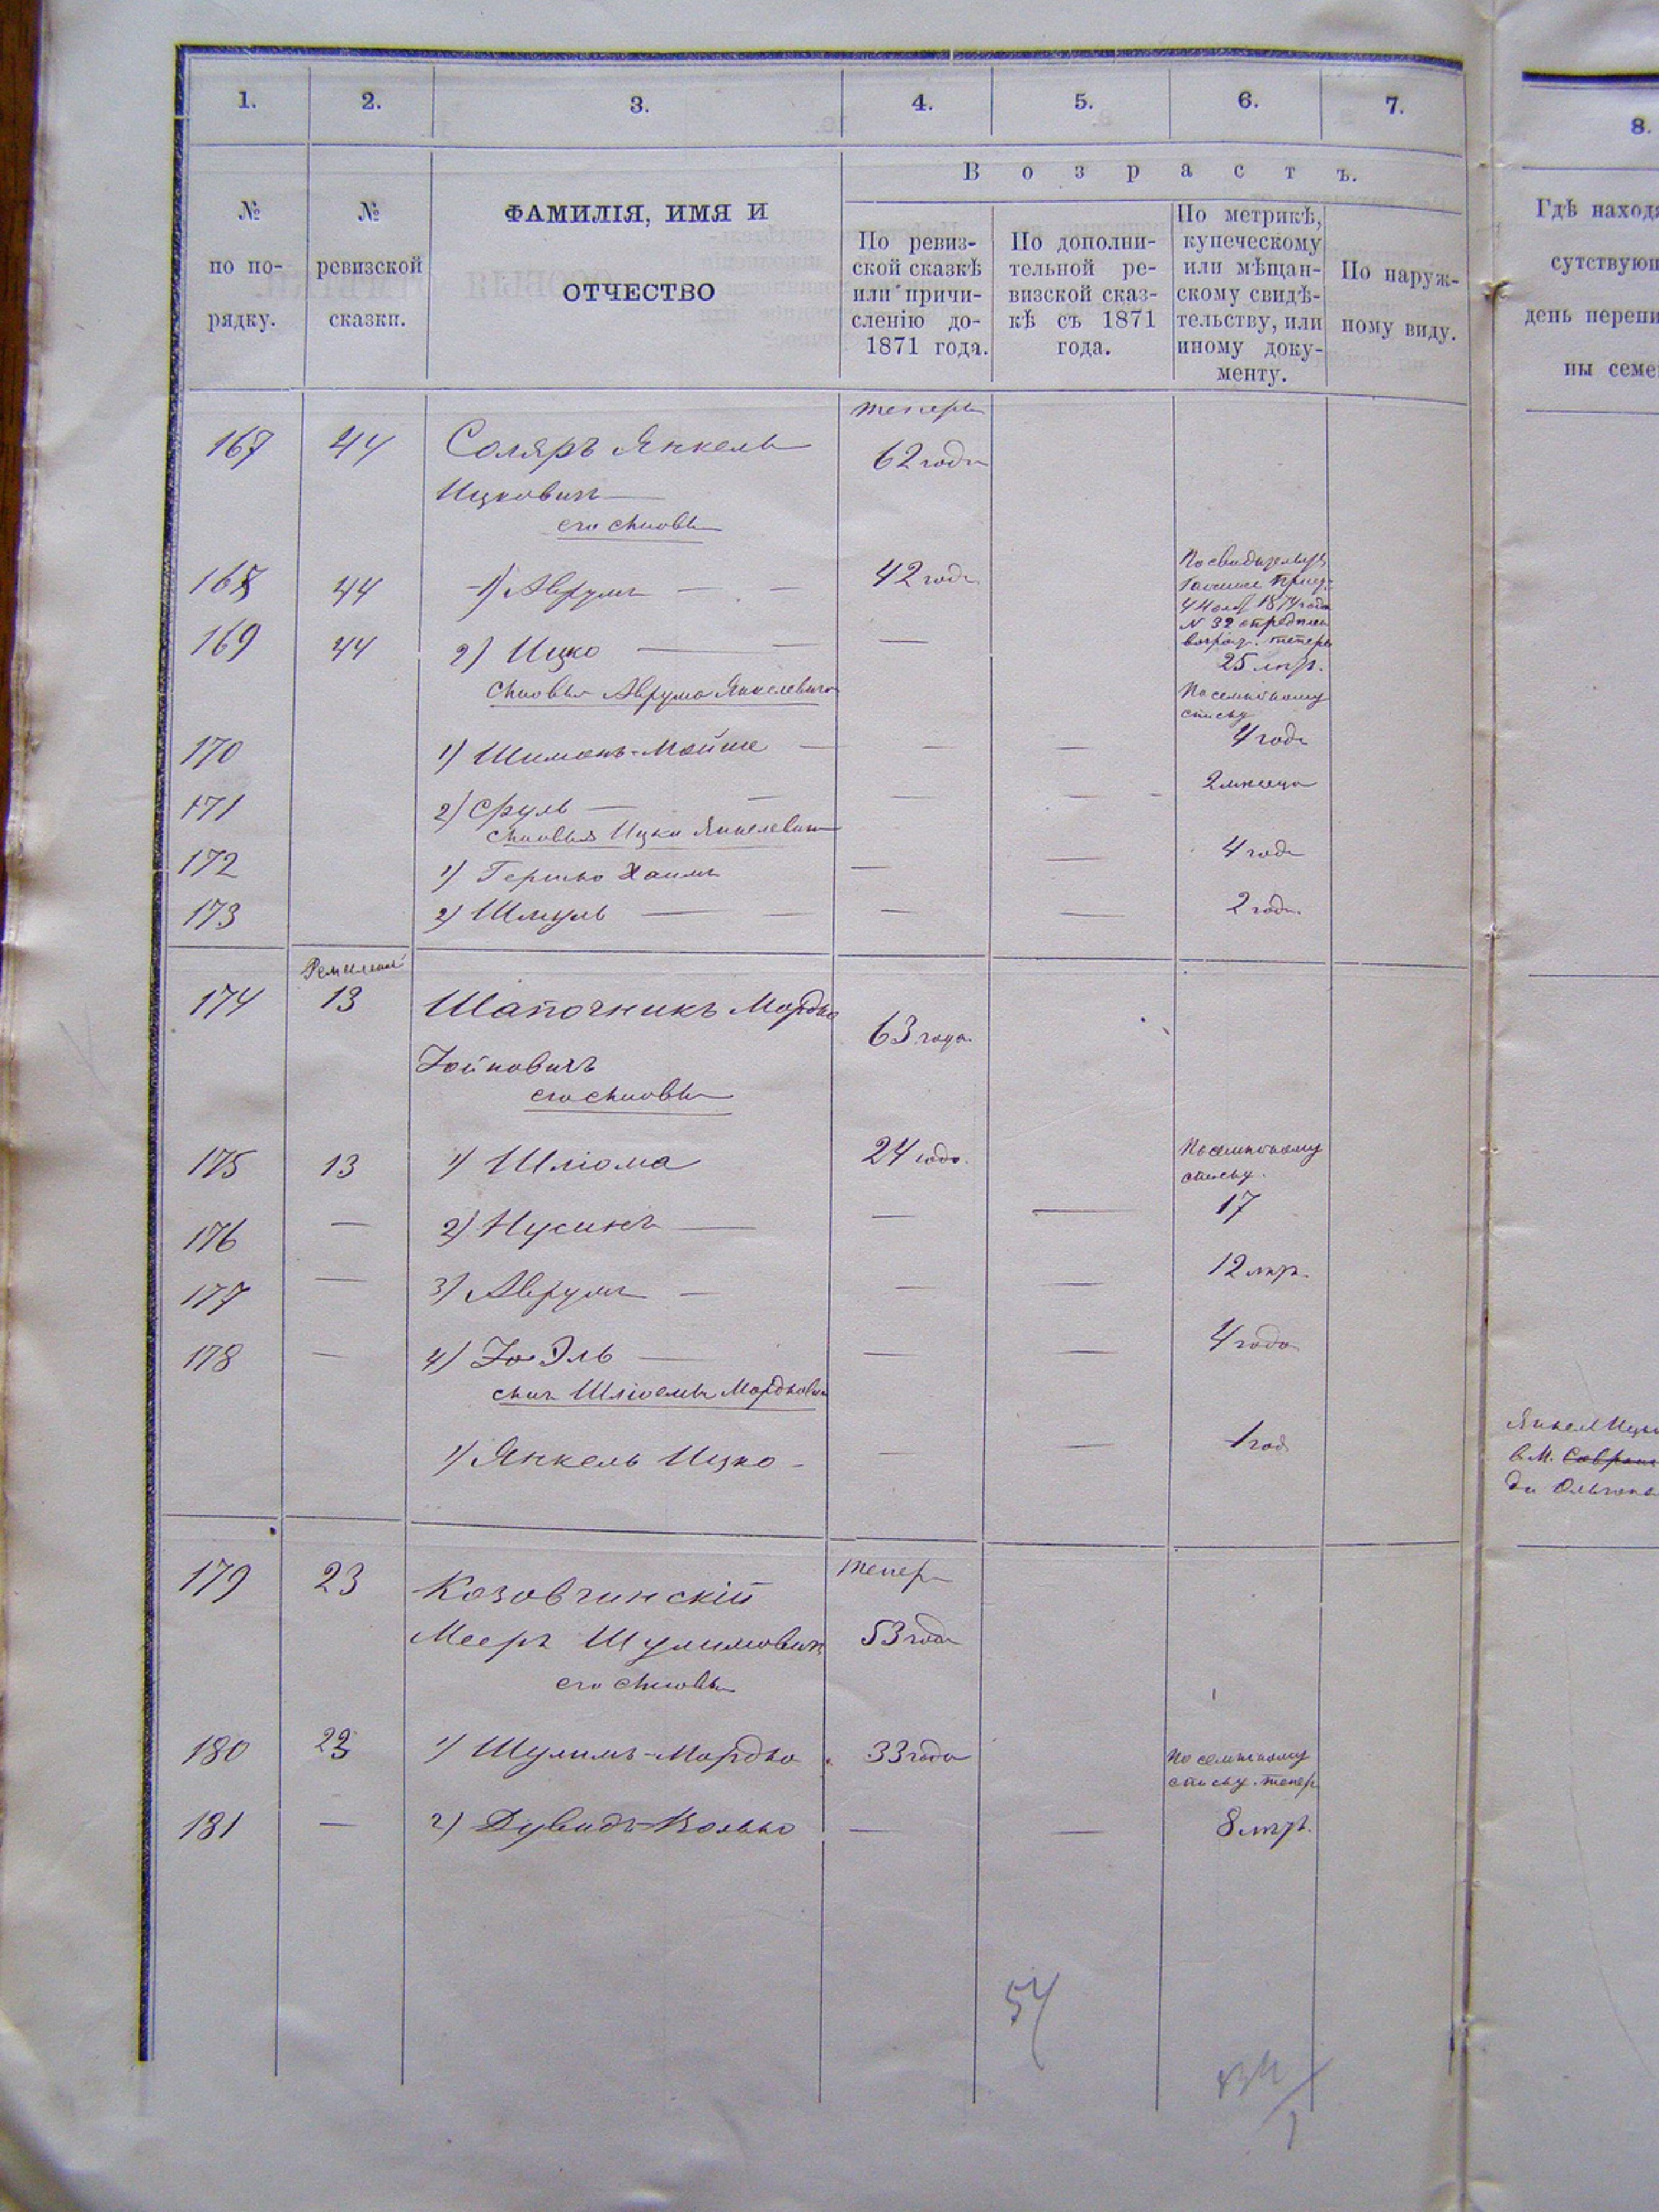 1. 2. 3. 4. 5. 6. 7.
8.
Возрастъ.
№ по по-
рядку.
№
ревизской
сказки.
ФАМИЛІЯ, ИМЯ И
ОТЧЕСТВО
По ревиз-
ской сказкѣ
или причи-
сленію до-
1871 года.
По дополни-
тельной ре-
визской сказ-
кѣ съ 1871
года.
По метрикѣ,
купеческому
или мѣщан-
скому свидѣ-
тельству, или
иному доку-
менту.
По наруж-
ному виду.
Гдѣ находя
сутствующ
день перепи
ны семе
теперь
167 44 Соляръ Янкель 62 года
Ицковичъ
его сыновья
168 44 1) Аврумъ — — 42 года
169 44 2) Ицко — — —
1874 года
№ 32
теперь
25 лѣтъ.
Сыновья Аврума Янкелевича
По семейному
списку
170 1) Шимонъ-Мойше — — — 4 года
171 2) Сруль — — — — 2 мѣсяца
Сыновья Ицки Янкелевича
172 1) Гершко Хаимъ — — 4 года
173 2) Шмуль — — — — 2 года.
174 13 Шапочникъ Мордко 63 года
Іойновичъ
его сыновья
175 13 1) Шліома 24 года.
По семейному
списку.
176 — 2) Нусинъ — — — 17
177 — 3) Аврумъ — — — 12 лѣтъ.
178 — 4) Іо Эль — — — 4 года
сынъ Шліомы Мордковича
1) Янкель Ицко - — — 1 год
в М.
179 23 Козовчинскій теперь
Мееръ Шулимовичъ 53 года
его сыновья
180 23 1) Шулимъ-Мордко 33 года
По семейному
списку. теперь
181 — 2) Дувидъ-Волько — — 8 лѣтъ.
54